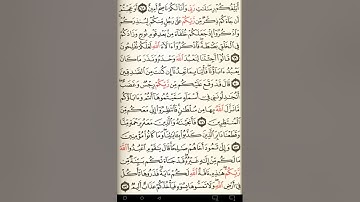 أُبَلِّغُكُمْ رِسَٰلَٰتِ رَبِّى وَأَنَا۠ لَكُمْ نَاصِحٌ أَمِينٌ ٦٨ أَوَعَجِبْتُمْ
أَن جَآءَكُمْ ذِكْرٌ مِّن رَّبِّكُمْ عَلَىٰ رَجُلٍ مِّنكُمْ لِيُنذِرَكُمْ
وَٱذْكُرُوٓا۟ إِذْ جَعَلَكُمْ خُلَفَآءَ مِنۢ بَعْدِ قَوْمِ نُوحٍ وَزَادَكُمْ
فِى ٱلْخَلْقِ بَصْۜطَةً فَٱذْكُرُوٓا۟ ءَالَآءَ ٱللَّهِ لَعَلَّكُمْ تُفْلِحُونَ
٦٩ قَالُوٓا۟ أَجِئْتَنَا لِنَعْبُدَ ٱللَّهَ وَحْدَهُۥ وَنَذَرَ مَا كَانَ
يَعْبُدُ ءَابَآؤُنَا فَأْتِنَا بِمَا تَعِدُنَآ إِن كُنتَ مِنَ ٱلصَّٰدِقِينَ
٧٠ قَالَ قَدْ وَقَعَ عَلَيْكُم مِّن رَّبِّكُمْ رِجْسٌ وَغَضَبٌ
أَتُجَٰدِلُونَنِى فِىٓ أَسْمَآءٍ سَمَّيْتُمُوهَآ أَنتُمْ وَءَابَآؤُكُم
مَّا نَزَّلَ ٱللَّهُ بِهَا مِن سُلْطَٰنٍ فَٱنتَظِرُوٓا۟ إِنِّى مَعَكُم
مِّنَ ٱلْمُنتَظِرِينَ ٧١ فَأَنجَيْنَٰهُ وَٱلَّذِينَ مَعَهُۥ بِرَحْمَةٍ مِّنَّا
وَقَطَعْنَا دَابِرَ ٱلَّذِينَ كَذَّبُوا۟ بِـَٔايَٰتِنَا وَمَا كَانُوا۟ مُؤْمِنِينَ
٧٢ وَإِلَىٰ ثَمُودَ أَخَاهُمْ صَٰلِحًا قَالَ يَٰقَوْمِ ٱعْبُدُوا۟ ٱللَّهَ
مَا لَكُم مِّنْ إِلَٰهٍ غَيْرُهُۥ قَدْ جَآءَتْكُم بَيِّنَةٌ مِّن
رَّبِّكُمْ هَٰذِهِۦ نَاقَةُ ٱللَّهِ لَكُمْ ءَايَةً فَذَرُوهَا تَأْكُلْ
فِىٓ أَرْضِ ٱللَّهِ وَلَا تَمَسُّوهَا بِسُوٓءٍ فَيَأْخُذَكُمْ عَذَابٌ أَلِيمٌ ٧٣